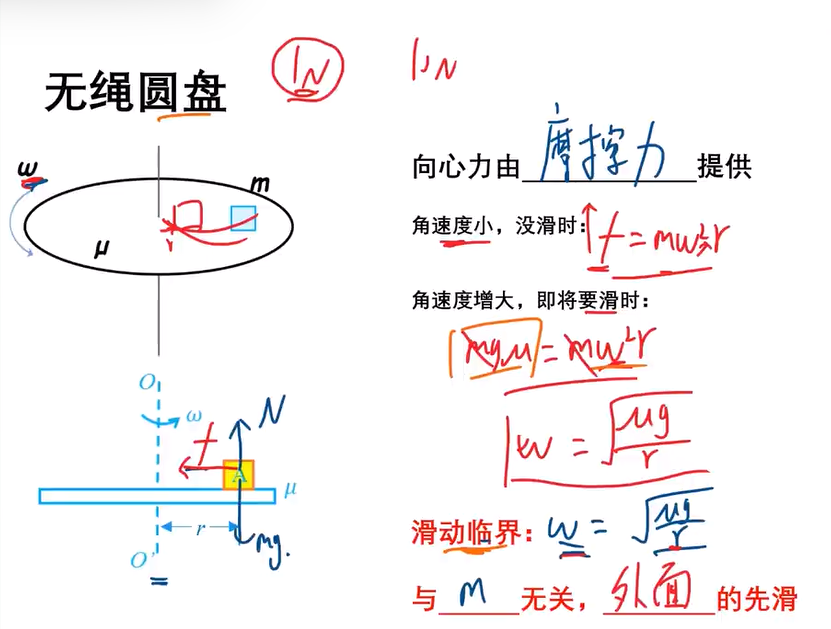 无绳圆盘
1N
1N
向心力由摩擦力提供
ω
m
μ
r
角速度小，没滑时：f = mω²r
角速度增大，即将要滑时：
mgμ = mω²r
ω = √(μg/r)
O
ω
N
f
A
μ
r
mg.
O'
滑动临界：ω = √(μg/r)
与 m 无关，外面 的先滑